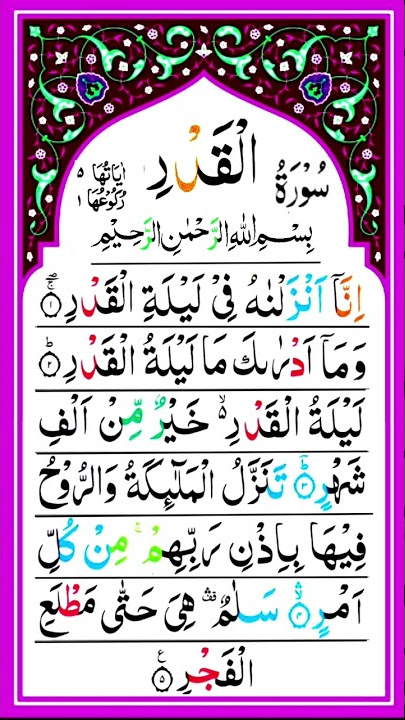 سُوْرَةُ الْقَدْرِ
اٰيَاتُهَا ٥
رُكُوْعُهَا ١
بِسْمِ اللهِ الرَّحْمٰنِ الرَّحِيْمِ
اِنَّاۤ اَنْزَلْنٰهُ فِيْ لَيْلَةِ الْقَدْرِ ۚۖ ۝١
وَمَاۤ اَدْرٰىكَ مَا لَيْلَةُ الْقَدْرِ ؕ ۝٢
لَيْلَةُ الْقَدْرِ ۙ۬ خَيْرٌ مِّنْ اَلْفِ
شَهْرٍ ؕ ۝٣ تَنَزَّلُ الْمَلٰٓئِكَةُ وَالرُّوْحُ
فِيْهَا بِاِذْنِ رَبِّهِمْ ۚ مِنْ كُلِّ
اَمْرٍ ۙۛ ۝٤ سَلٰمٌ ۛ۫ هِيَ حَتّٰى مَطْلَعِ
الْفَجْرِ ۝٥ ع